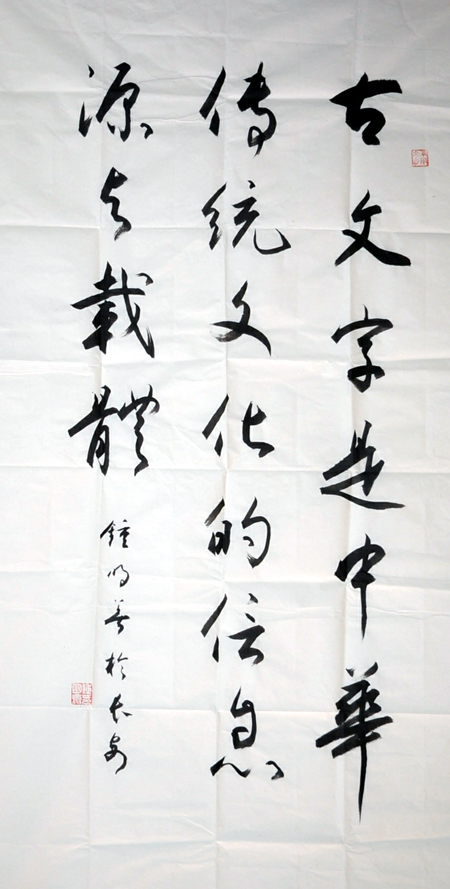 古文字是中華
傳統文化的信息
源與載體
鍾明善於長安